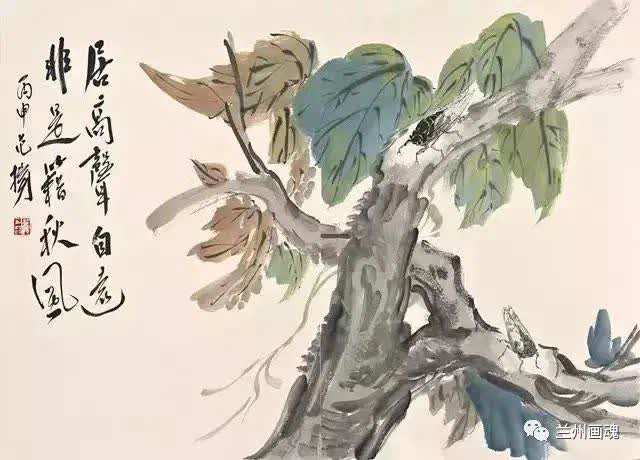 居高聲自遠
非是籍秋風
丙申范揚
兰州画魂